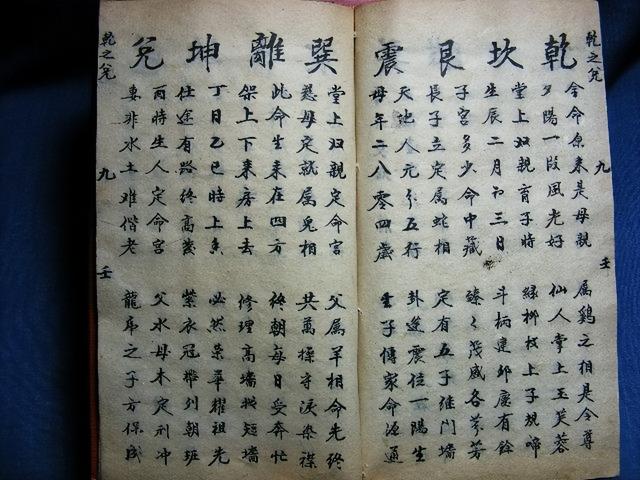 乾之兌 九 壬
乾坎艮震
今命原来是母親 属鷄之相是今尊
夕陽一段風光好 仙人掌上玉芙蓉
堂上双親育子時 緑柳枝上子規啼
生辰二月初三日 斗柄建卯慶有餘
子宮多少命中藏 臻々茂盛各芬芳
長子立定属蛇相 定有五子維門墻
天地人元分五行 卦逢震位一陽生
母年二八零四歲 子傳家命源通
巽離坤兌
堂上双親定命宫 父属羊相命先終
慈母定就属兎相 共萬操守淚染襟
此命生来在四方 終朝每日受奔忙
架上下来房上去 修理高墙短墙
丁日乙巳時上 必然荣華耀祖先
仕途有路終高 紫衣冠带列朝班
酉時生人定命宮 父水母木定刑冲
妻非水土难偕老 龍之子方保成
乾之兌 九 壬